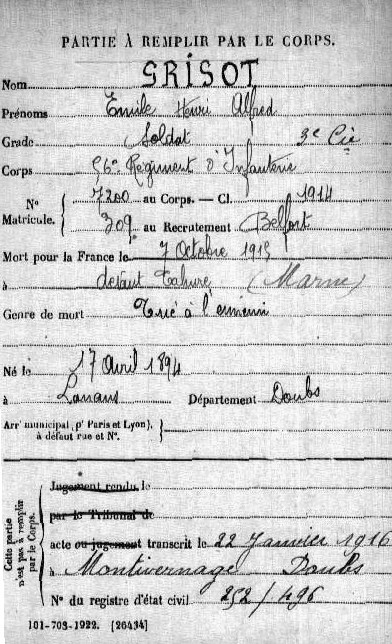 PARTIE À REMPLIR PAR LE CORPS.
Nom GRISOT
Prénoms Emile Henri Alfred
Grade Soldat 3e Cie
Corps 56e Régiment d'Infanterie
N° Matricule. { 7200 au Corps. — Cl. 1914
309 au Recrutement Belfort
Mort pour la France le 7 Octobre 1915
à devant Tahure (Marne)
Genre de mort Tué à l'ennemi
Né le 17 Avril 1894
à Lanans Département Doubs
Arrt municipal (pr Paris et Lyon), à défaut rue et N°. }
Cette partie n'est pas à remplir par le Corps.
Jugement rendu le
par le Tribunal de
acte ou jugement transcrit le 22 Janvier 1916
à Montivernage Doubs
N° du registre d'état civil 252/496
101-708-1922. [26434]